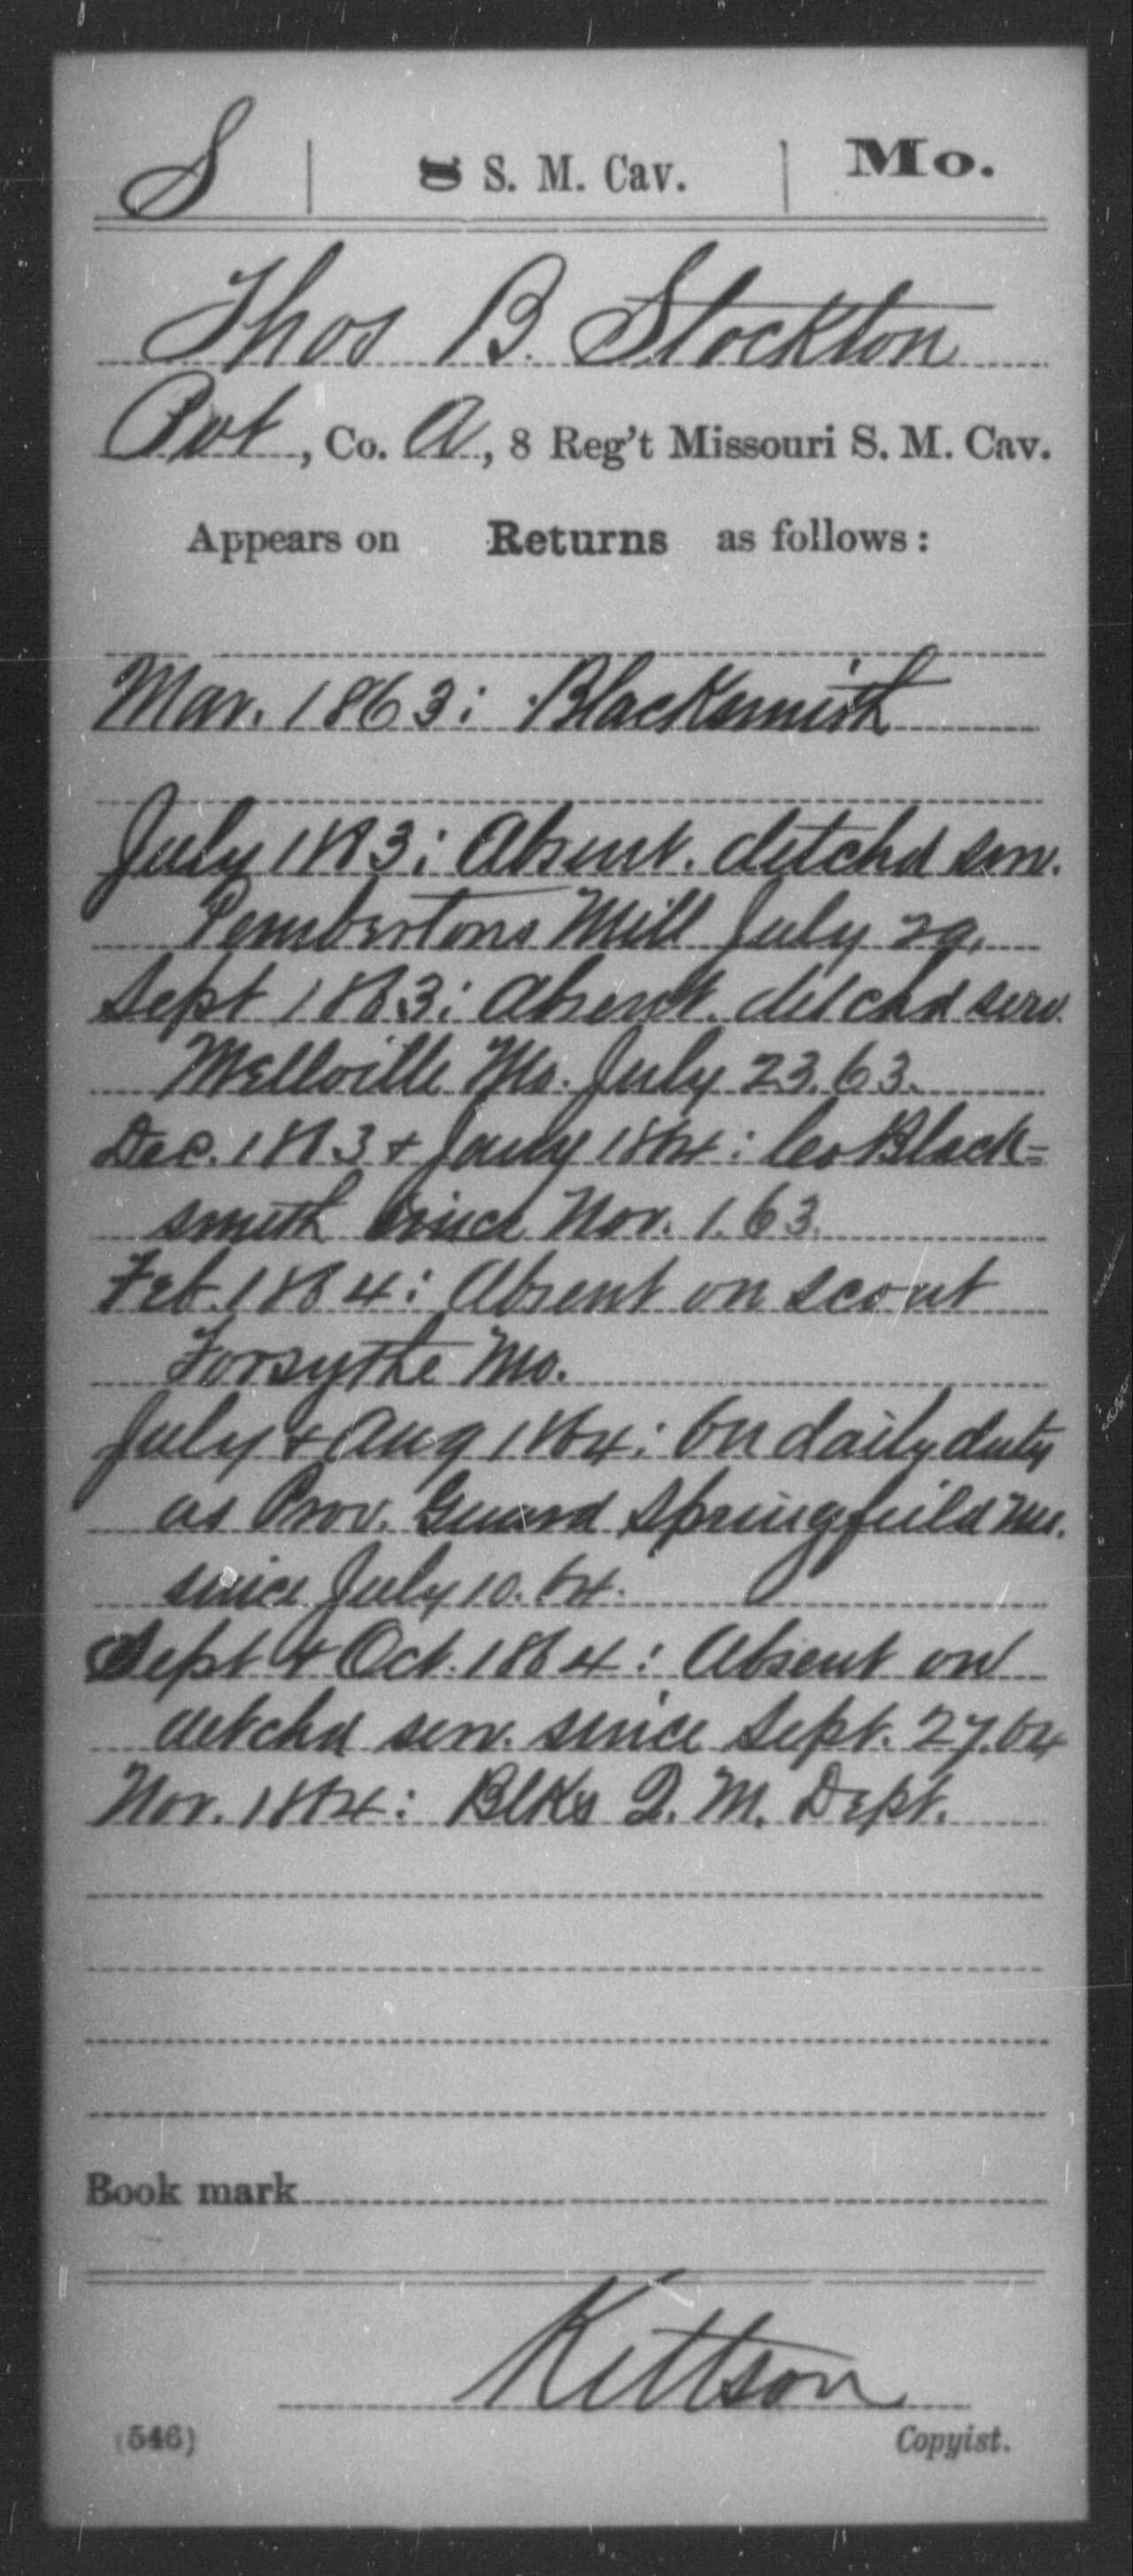 S | 8 S. M. Cav. | Mo.
Thos B. Stockton
Pvt, Co. A, 8 Reg't Missouri S. M. Cav.
Appears on Returns as follows:
Mar. 1863: Blacksmith
July 1863: Absent. detchd serv.
Pembertons Mill July 29.
Sept 1863: Absent. detchd serv.
Mellville Mo. July 23.63.
Dec. 1863 & Jany 1864: Co Black-
smith since Nov. 1.63.
Feb. 1864: Absent on scout
Forsythe Mo.
July & Aug 1864: On daily duty
as Prov. Guard Springfeild Mo.
since July 10.64.
Sept & Oct. 1864: Absent on
detchd serv. since Sept. 27.64
Nov. 1864: Blks Q. M. Dept.
Book mark
Kittson
(546) Copyist.